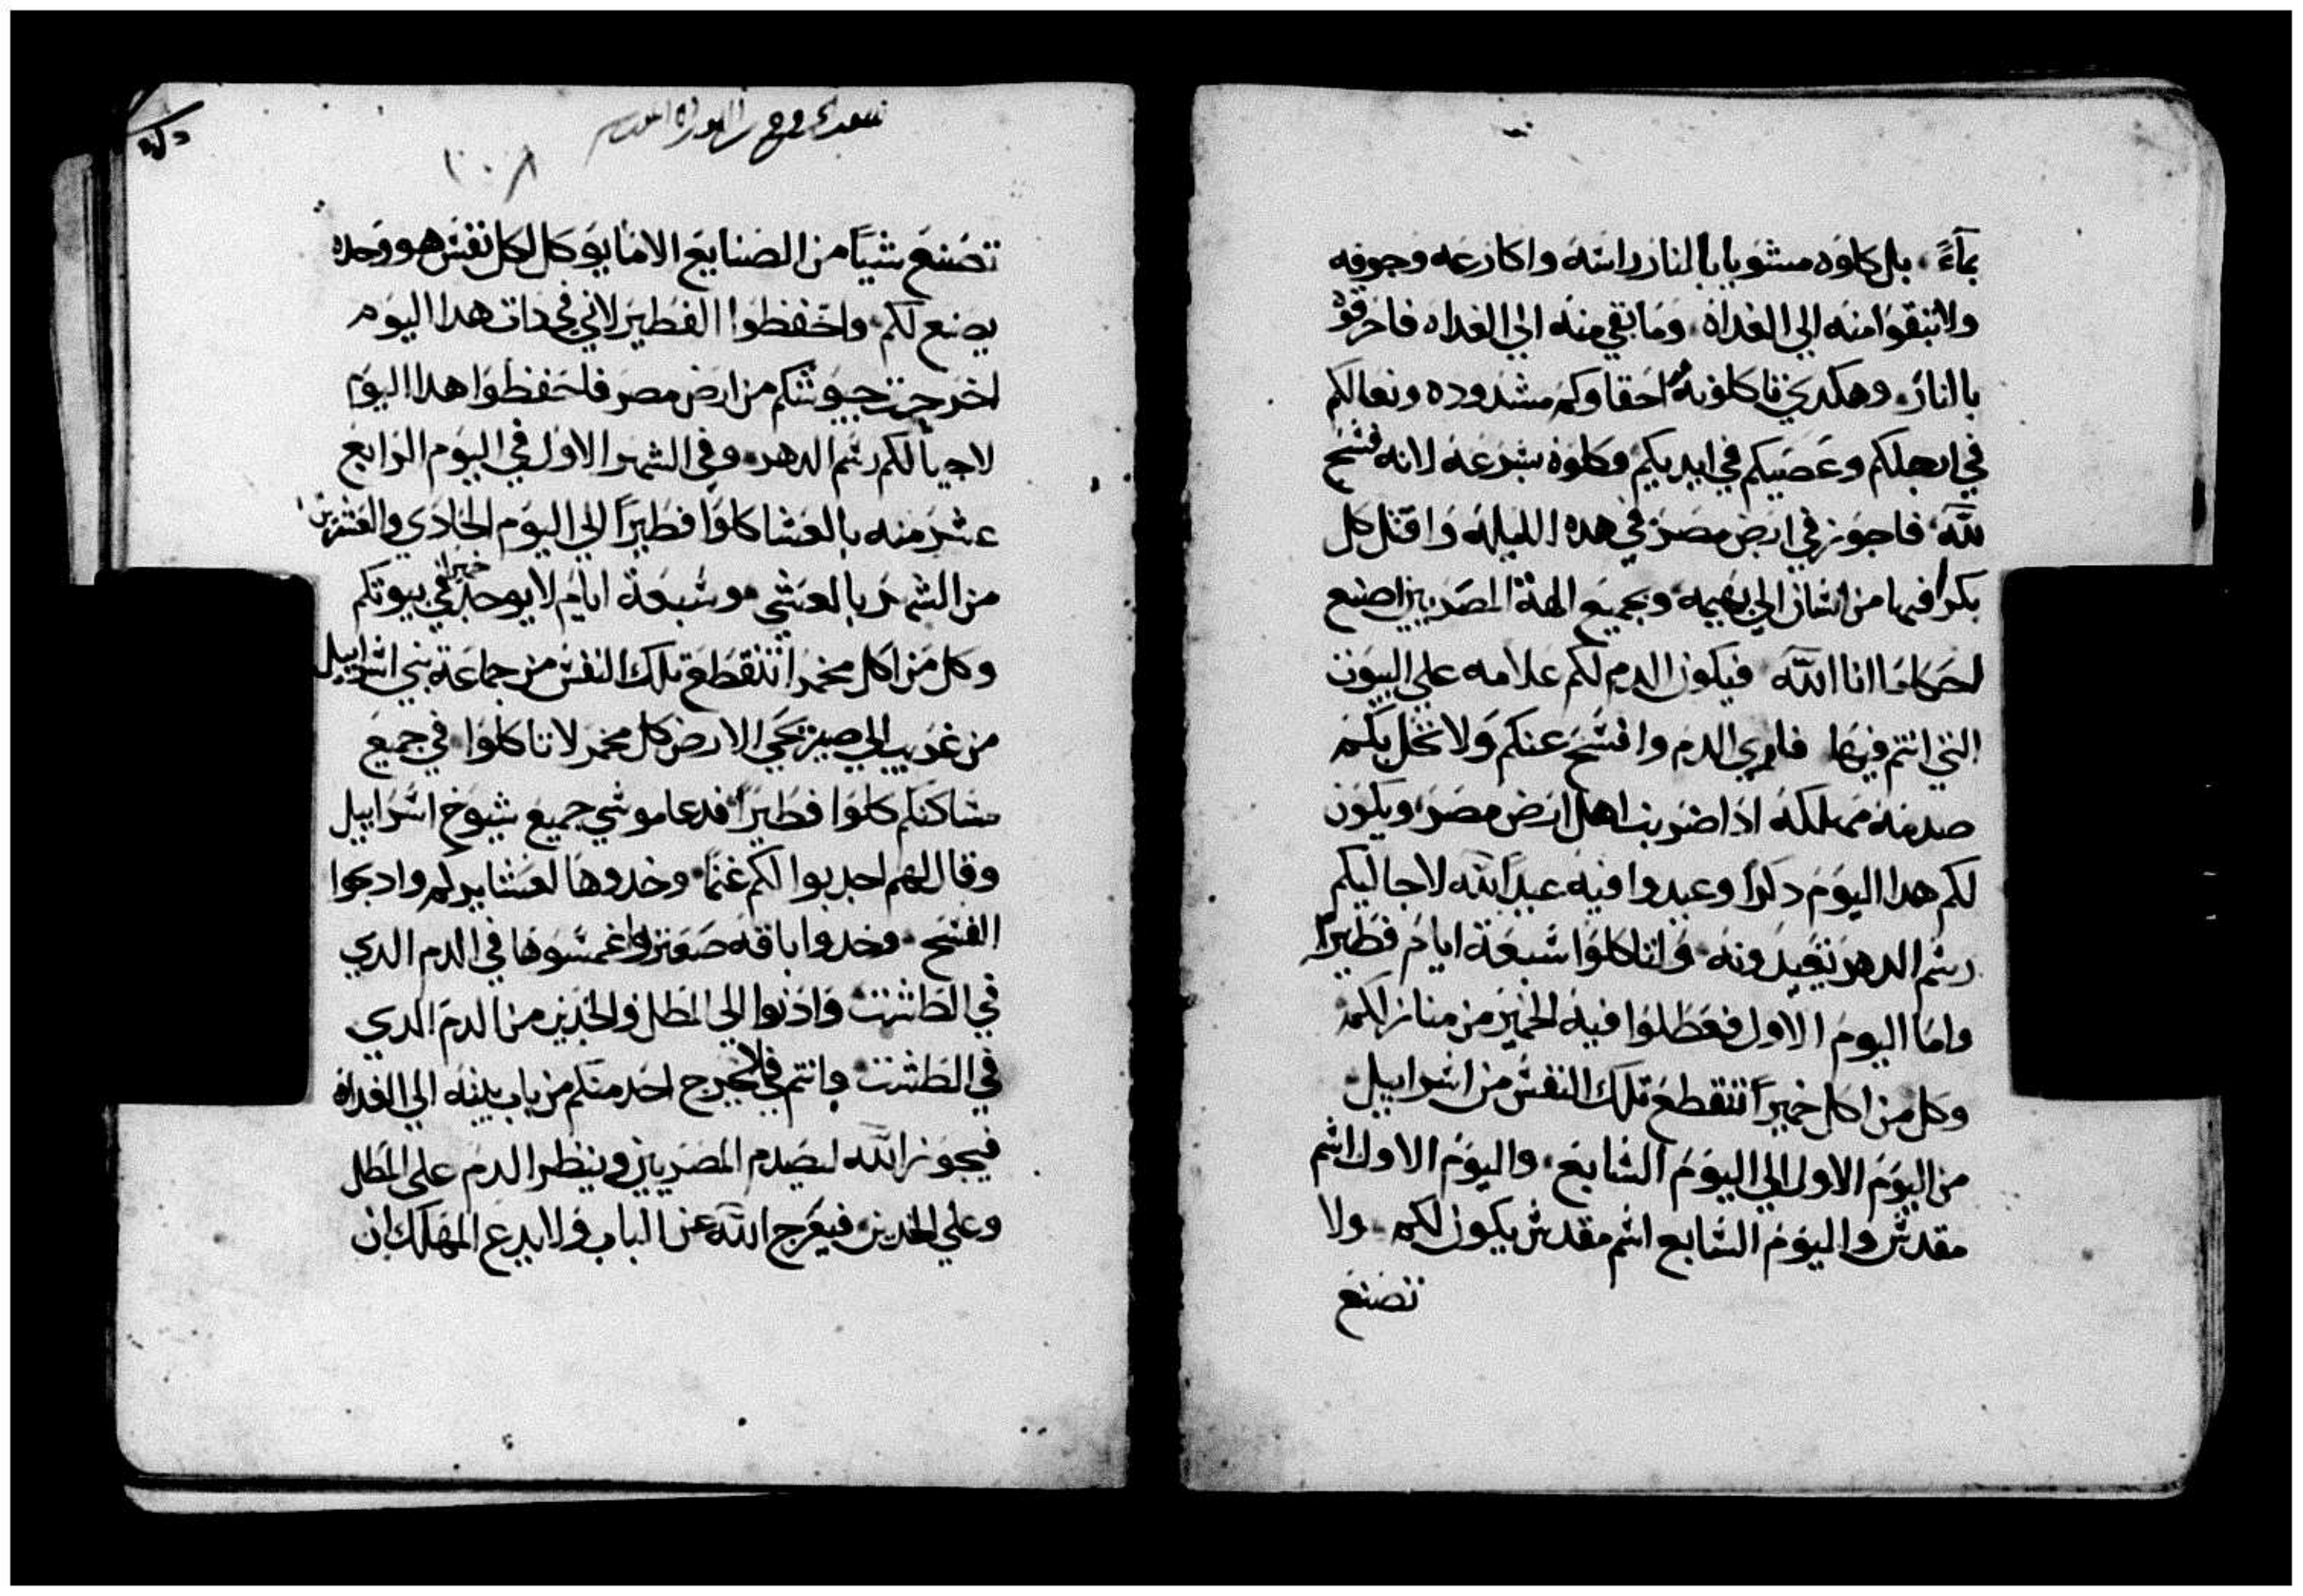 بمآءً. بل كلوه مشويا بالنار راسه واكارعه وجوفه
ولا تبقوا منه الي الغداه. وما بقي منه الي الغداه فاحرقوه
باالنار. وهكدي تاكلونه احقاوكم مشدوده ونعالكم
في ارجلكم وعصيكم في ايديكم وكلوه بسرعه لانه فسح
لله. فاجوز في ارض مصر في هده الليله واقتل كل
بكرا فيها من انسان الي بهيمه وبجميع الهة المصريين اصنع
احكاما انا الله فيكون الدم لكم علامه علي البيوت
التي انتم فيها فاري الدم وافسح عنكم ولا تحل بكم
صدمه مهلكه ادا ضربت اهل ارض مصر ويكون
لكم هدا اليوم دكرا وعيدوا فيه عيدا لله لاجاليكم
رسم الدهر تعيدونه ولتاكلوا سبعة ايام فطيرا
واما اليوم الاول فعطلوا فيه الخمير من منازلكم
وكل من اكل خميرا تنقطع تلك النفس من اسراييل
من اليوم الاول الي اليوم السابع. واليوم الاول اسم
مقدس واليوم السابع اسم مقدس يكون لكم. ولا
تصنع
١٠٨
تصنع شيا من الصنايع الا ما يوكل لكل نفس هو وحده
يصنع لكم واحفظوا الفطير لاني في دات هدا اليوم
اخرجت جيوشكم من ارض مصر فاحفظوا هدا اليوم
لاجيالكم رسم الدهر. وفي الشهر الاول في اليوم الرابع
عشر منه بالعشا كلوا فطيرا الي اليوم الحادي والعشرين
من الشهر بالعشي سبعة ايام لا يوجد خمير في بيوتكم
وكل من اكل مخمرا تنقطع تلك النفس من جماعة بني اسراييل
من غريب الي صريحي الارض كل مخمر لا تاكلوا في جميع
مساكنكم كلوا فطيرا فدعا موسي جميع شيوخ اسراييل
وقال لهم اجدبوا لكم غنما. وخدوها لعشايركم وادبحوا
الفسح. وخدوا باقه صعتر واغمسوها في الدم الدي
في الطست وادنوا الي المطل والخدين من الدم الدي
في الطست وانتم فلا يخرج احد منكم من باب بيته الي الغداه
فيجوز الله ليصدم المصريين وينظر الدم علي المطل
وعلي الخدين فيعرج الله عن الباب ولا يدع المهلك ان